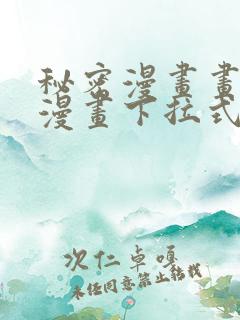 秘密漫畫畫
漫畫下拉式
次仁卓嘎
未经同意禁止转载